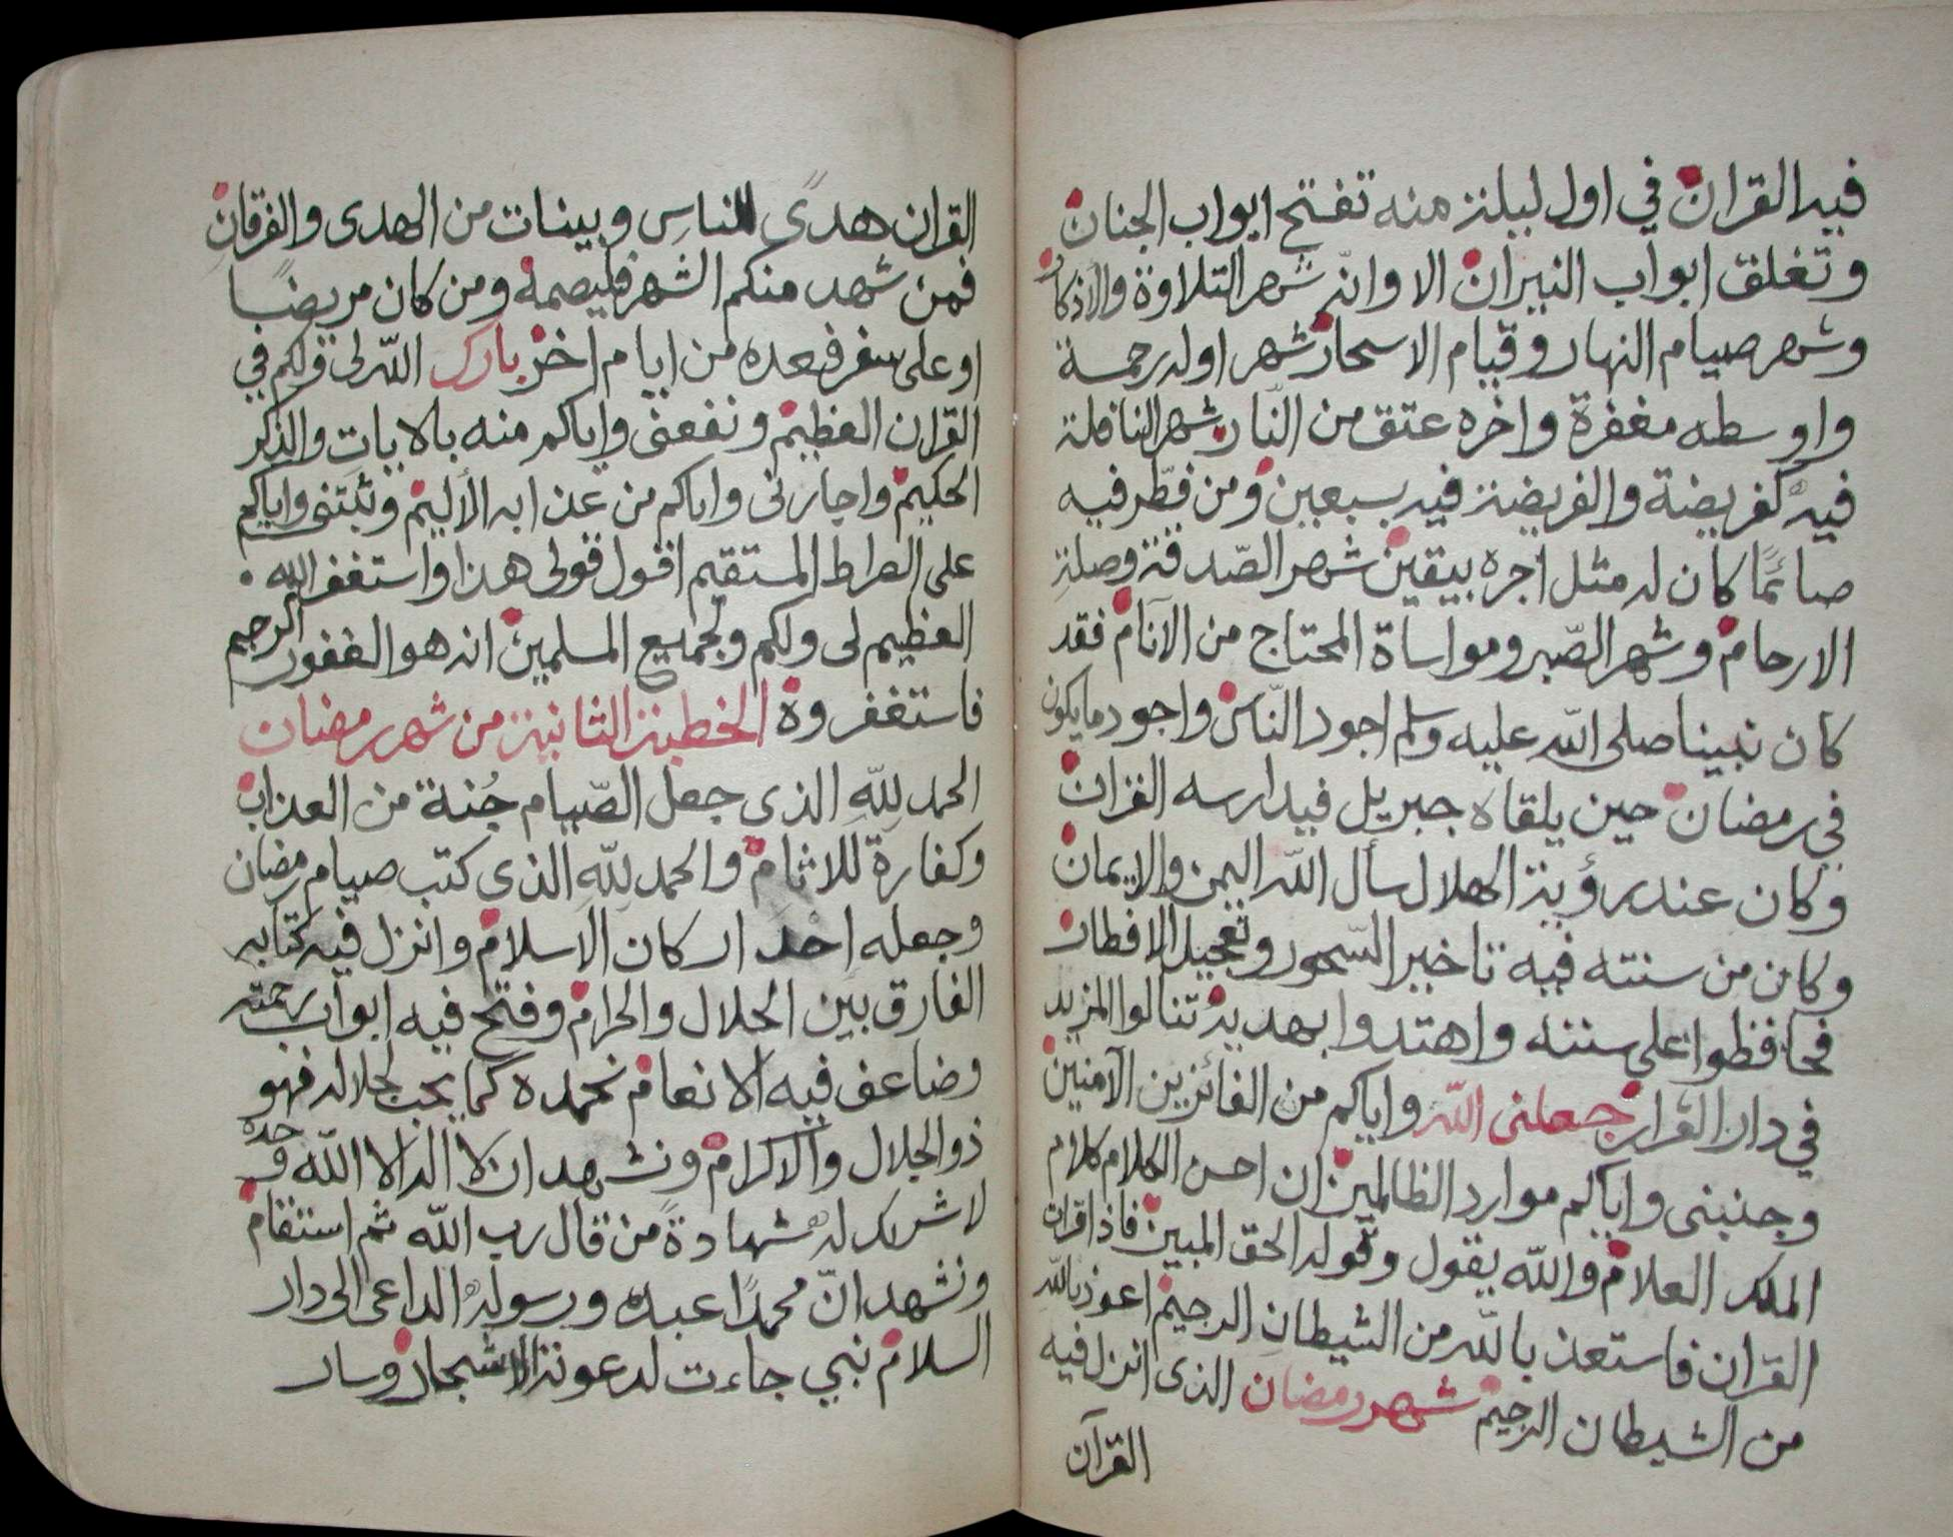 فيه القران في اول ليلة منه تفتح ابواب الجنان
وتغلق ابواب النيران الا وانه شهر التلاوة والاذكار
وشهر صيام النهار وقيام الاسحار شهر اوله رحمة
واوسطه مغفرة واخره عتق من النّار شهر النافلة
فيه كفريضة والفريضة فيه بسبعين ومن فطّر فيه
صائمًا كان له مثل اجره بيقين شهر الصّدقة وصلة
الارحام وشهر الصّبر ومواساة المحتاج من الآنام فقد
كان نبينا صلى اللّه عليه وسلم اجود النّاس واجود ما يكون
في رمضان حين يلقاه جبريل فيدارسه القران
وكان عند رؤية الهلال سأل اللّه اليمن والايمان
وكان من سنته فيه تاخير السّحور وتعجيل الافطار
فحافظوا على سنته واهتدوا بهديه تنالوا المزيد
في دار القرار جعلنى اللّه واياكم من الفائزين الآمنين
وجنبنى واياكم موارد الظالمين ان احسن الكلام كلام
الملك العلام واللّه يقول وقوله الحق المبين فاذا قرات
القران فاستعذ باللّه من الشيطان الرجيم اعوذ باللّه
من الشيطان الرجيم شهر رمضان الذى انزل فيه
القرآن
القران هدىً للناسِ وبينات من الهدى والفرقانِ
فمن شهد منكم الشهر فليصمه ومن كان مريضًا
او على سفر فعدة من ايام اخر بارك اللّه لى ولكم في
القران العظيم ونفعنى واياكم منه بالايات والذكر
الحكيم واجارنى واياكم من عذابه الأليم وثبّتنى واياكم
على الصراط المستقيم اقول قولى هذا واستغفر الله
العظيم لى ولكم ولجميع المسلمين انه هو الغفور الرحيم
فاستغفروه الخطبة الثانية من شهر رمضان
الحمد للّهِ الذى جعل الصّيام جُنة من العذاب
وكفارة للاثام والحمد للّهِ الذى كتب صيام رمضان
وجعله احد اركان الاسلام وانزل فيه كتابه
الفارق بين الحلال والحرام وفتح فيه ابواب رحمته
وضاعف فيه الانعام نحمده كما يجب لجلاله فهو
ذو الجلال والاكرام ونشهد ان لا اله الا اللّه وحده
لا شريك له شهادةً من قال رب اللّه ثم استقام
ونشهد انّ محمدًا عبده ورسوله الداعى الى دار
السلام نبي جاءت لدعوته الاشجار وسار